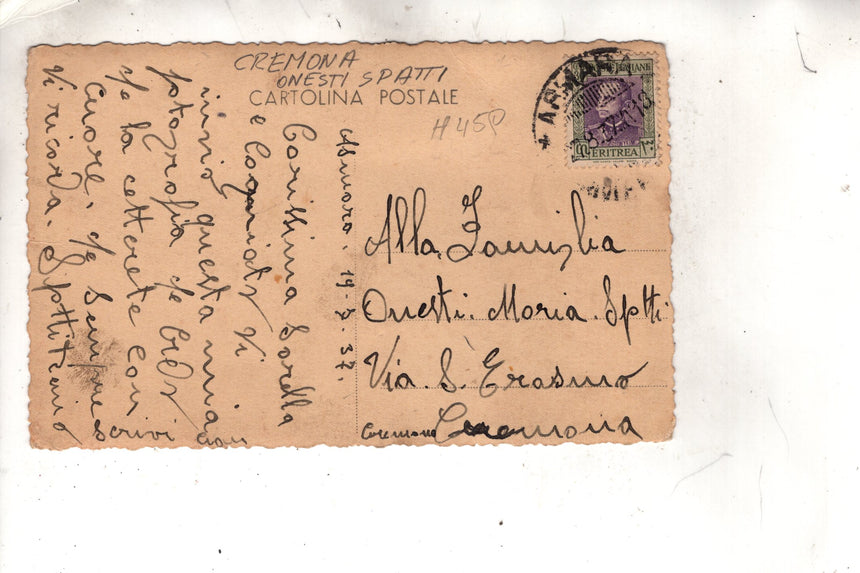 CREMONA
ONESTI SPATTI
CARTOLINA POSTALE
H 450
ERITREA
Asmara. 19-8-37.
Carissima Sorella
e Cognato Vi
invio questa mia
fotografia che
che la cetterete con
Cuore. che Sempre scrivi
Vi ricorda.
Alla Famiglia
Onesti. Maria. Sptti
Via. S. Erasmo
Cremona Cremona